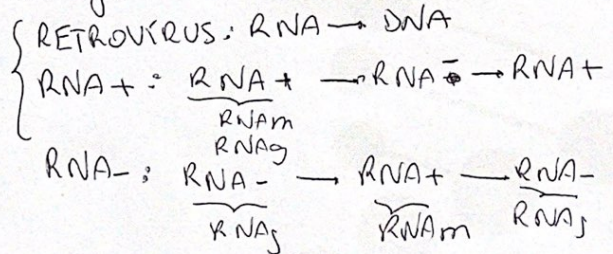 RETROVÍRUS: RNA → DNA
RNA+ : RNA+ → RNA- → RNA+
RNAm
RNAg
RNA- : RNA- → RNA+ → RNA-
RNAg RNAm RNAg